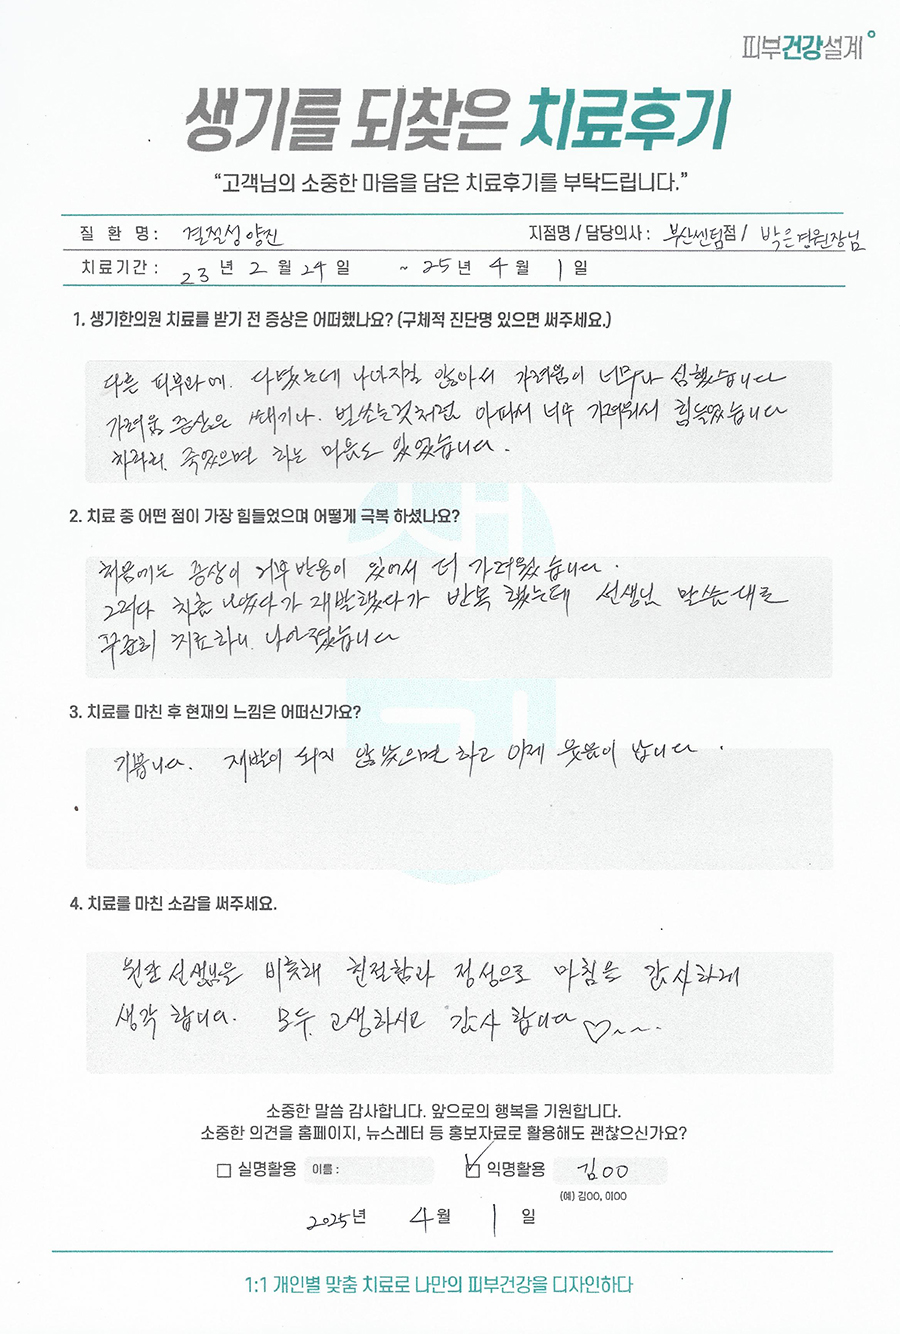 피부건강설계
생기를 되찾은 치료후기
“고객님의 소중한 마음을 담은 치료후기를 부탁드립니다.”
질 환 명 : 결절성양진 지점명 / 담당의사 : 부산센텀점 / 박은경원장님
치료기간 : 23 년 2 월 24 일 ~ 25 년 4 월 1 일
1. 생기한의원 치료를 받기 전 증상은 어떠했나요? (구체적 진단명 있으면 써주세요.)
다른 피부과에. 다녔는데 나아지질 않아서 가려움이 너무나 심했습니다
가려움 증상은 쌔기나. 벌쏘는것처럼 아파서 너무 가려워서 힘들었습니다
차라리. 죽었으면 하는 마음도 있었습니다.
2. 치료 중 어떤 점이 가장 힘들었으며 어떻게 극복 하셨나요?
처음에는 증상이 거부반응이 있어서 더 가려웠습니다.
그러다 차츰 나았다가 재발했다가 반복 했는데 선생님 말씀대로
꾸준히 치료하니 나아졌습니다
3. 치료를 마친 후 현재의 느낌은 어떠신가요?
기쁩니다. 재발이 되지 않았으면 하고 이제 웃음이 납니다.
4. 치료를 마친 소감을 써주세요.
원장선생님을 비롯해 친절함과 정성으로 마침을 감사하게
생각 합니다. 모두. 고생하시고 감사 합니다 ♡~~.
소중한 말씀 감사합니다. 앞으로의 행복을 기원합니다.
소중한 의견을 홈페이지, 뉴스레터 등 홍보자료로 활용해도 괜찮으신가요?
실명활용 이름 : 익명활용 김OO
(예) 김OO, 이OO
2025년 4월 1 일
1:1 개인별 맞춤 치료로 나만의 피부건강을 디자인하다